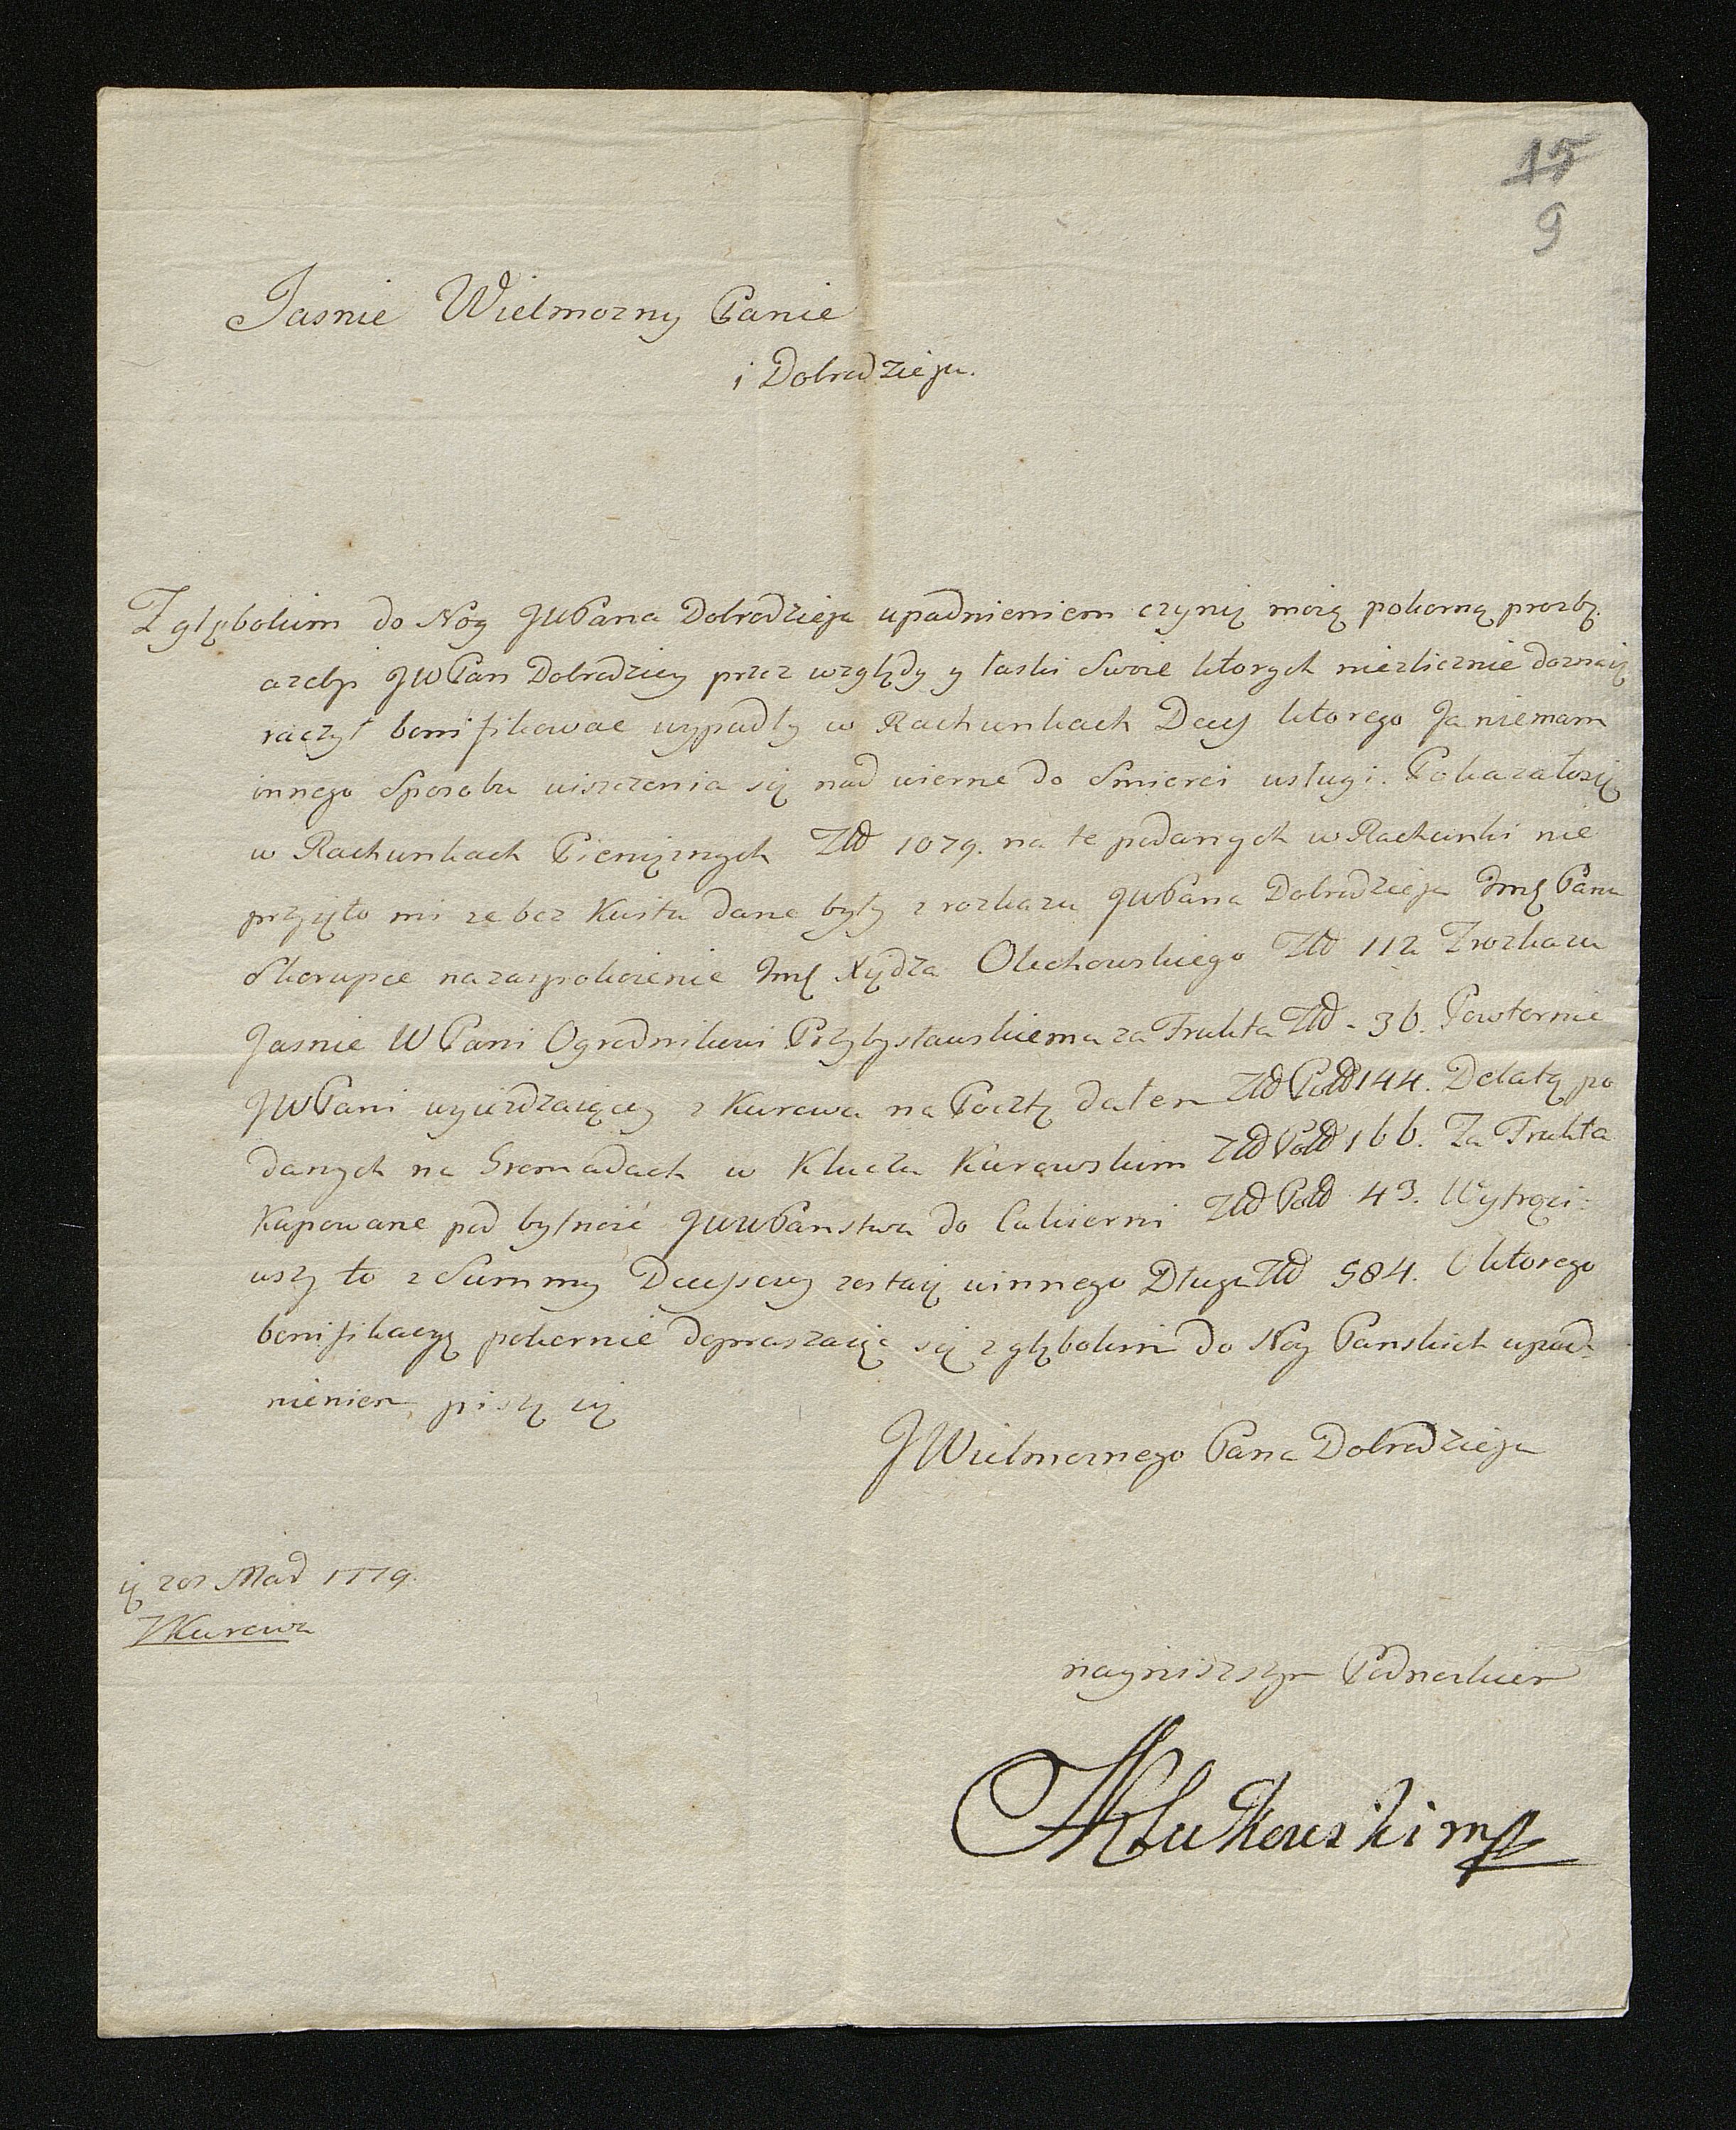 15
9
Jasnie Wielmozny Panie
i Dobrodzieju.
Z głębokim do Nog JWPana Dobrodzieja upadnieniem czynię moię pokorną prozbę.
azeby JWPan Dobrodziey przez względy y łaski Swoie ktorych niezlicznie doznaię
raczył bonifikowac wypadły w Rachunkach Decess ktorego Ja niemam
innego Sposobu uiszczenia się nad wierne do Smierci usługi. Pokazałosię
w Rachunkach Pienięznych Złł 1079. na te podanych w Rachunki nie
przyięto mi ze bez Kwitu dane były z rozkazu JWPana Dobrodzieja Jmę Panu
Skorupce na zaspokoienie Jmę Xiędza Olechowskiego Złł 112 Z rozkazu
Jasnie WPani Ogrodnikowi Przybysławskiemu za Frukta Złł - 30. Powtornie
JWPani wyiezdzaiący z Kurowa na Pocztę dałem Złł Poll 144. Delatę po
danych na Gromadach w Kluczu Kurowskim Złł Poll 166. Za Frukta
Kupowane pod bytność JWWPanstwa do Cukierni Złł Poll 43. Wytrąci-
wszy to z Summy Decessowy zostaię winnego Długu Złł 584. O ktorego
bonifikacyę pokornie dopraszaiąc się z głębokim do Nog Panskich upad-
nieniem piszę się
JWielmoznego Pana Dobrodzieja
Maii 1779.
Z Kurowa
naynizszym Podnozkiem
Klukowski mp